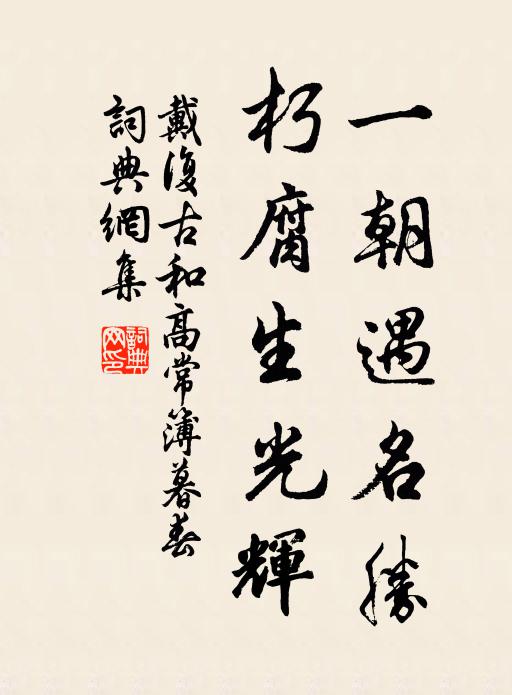 一朝遇名勝
朽腐生光輝
戴復古和高常簿暮春
詞典網集
詞典網印